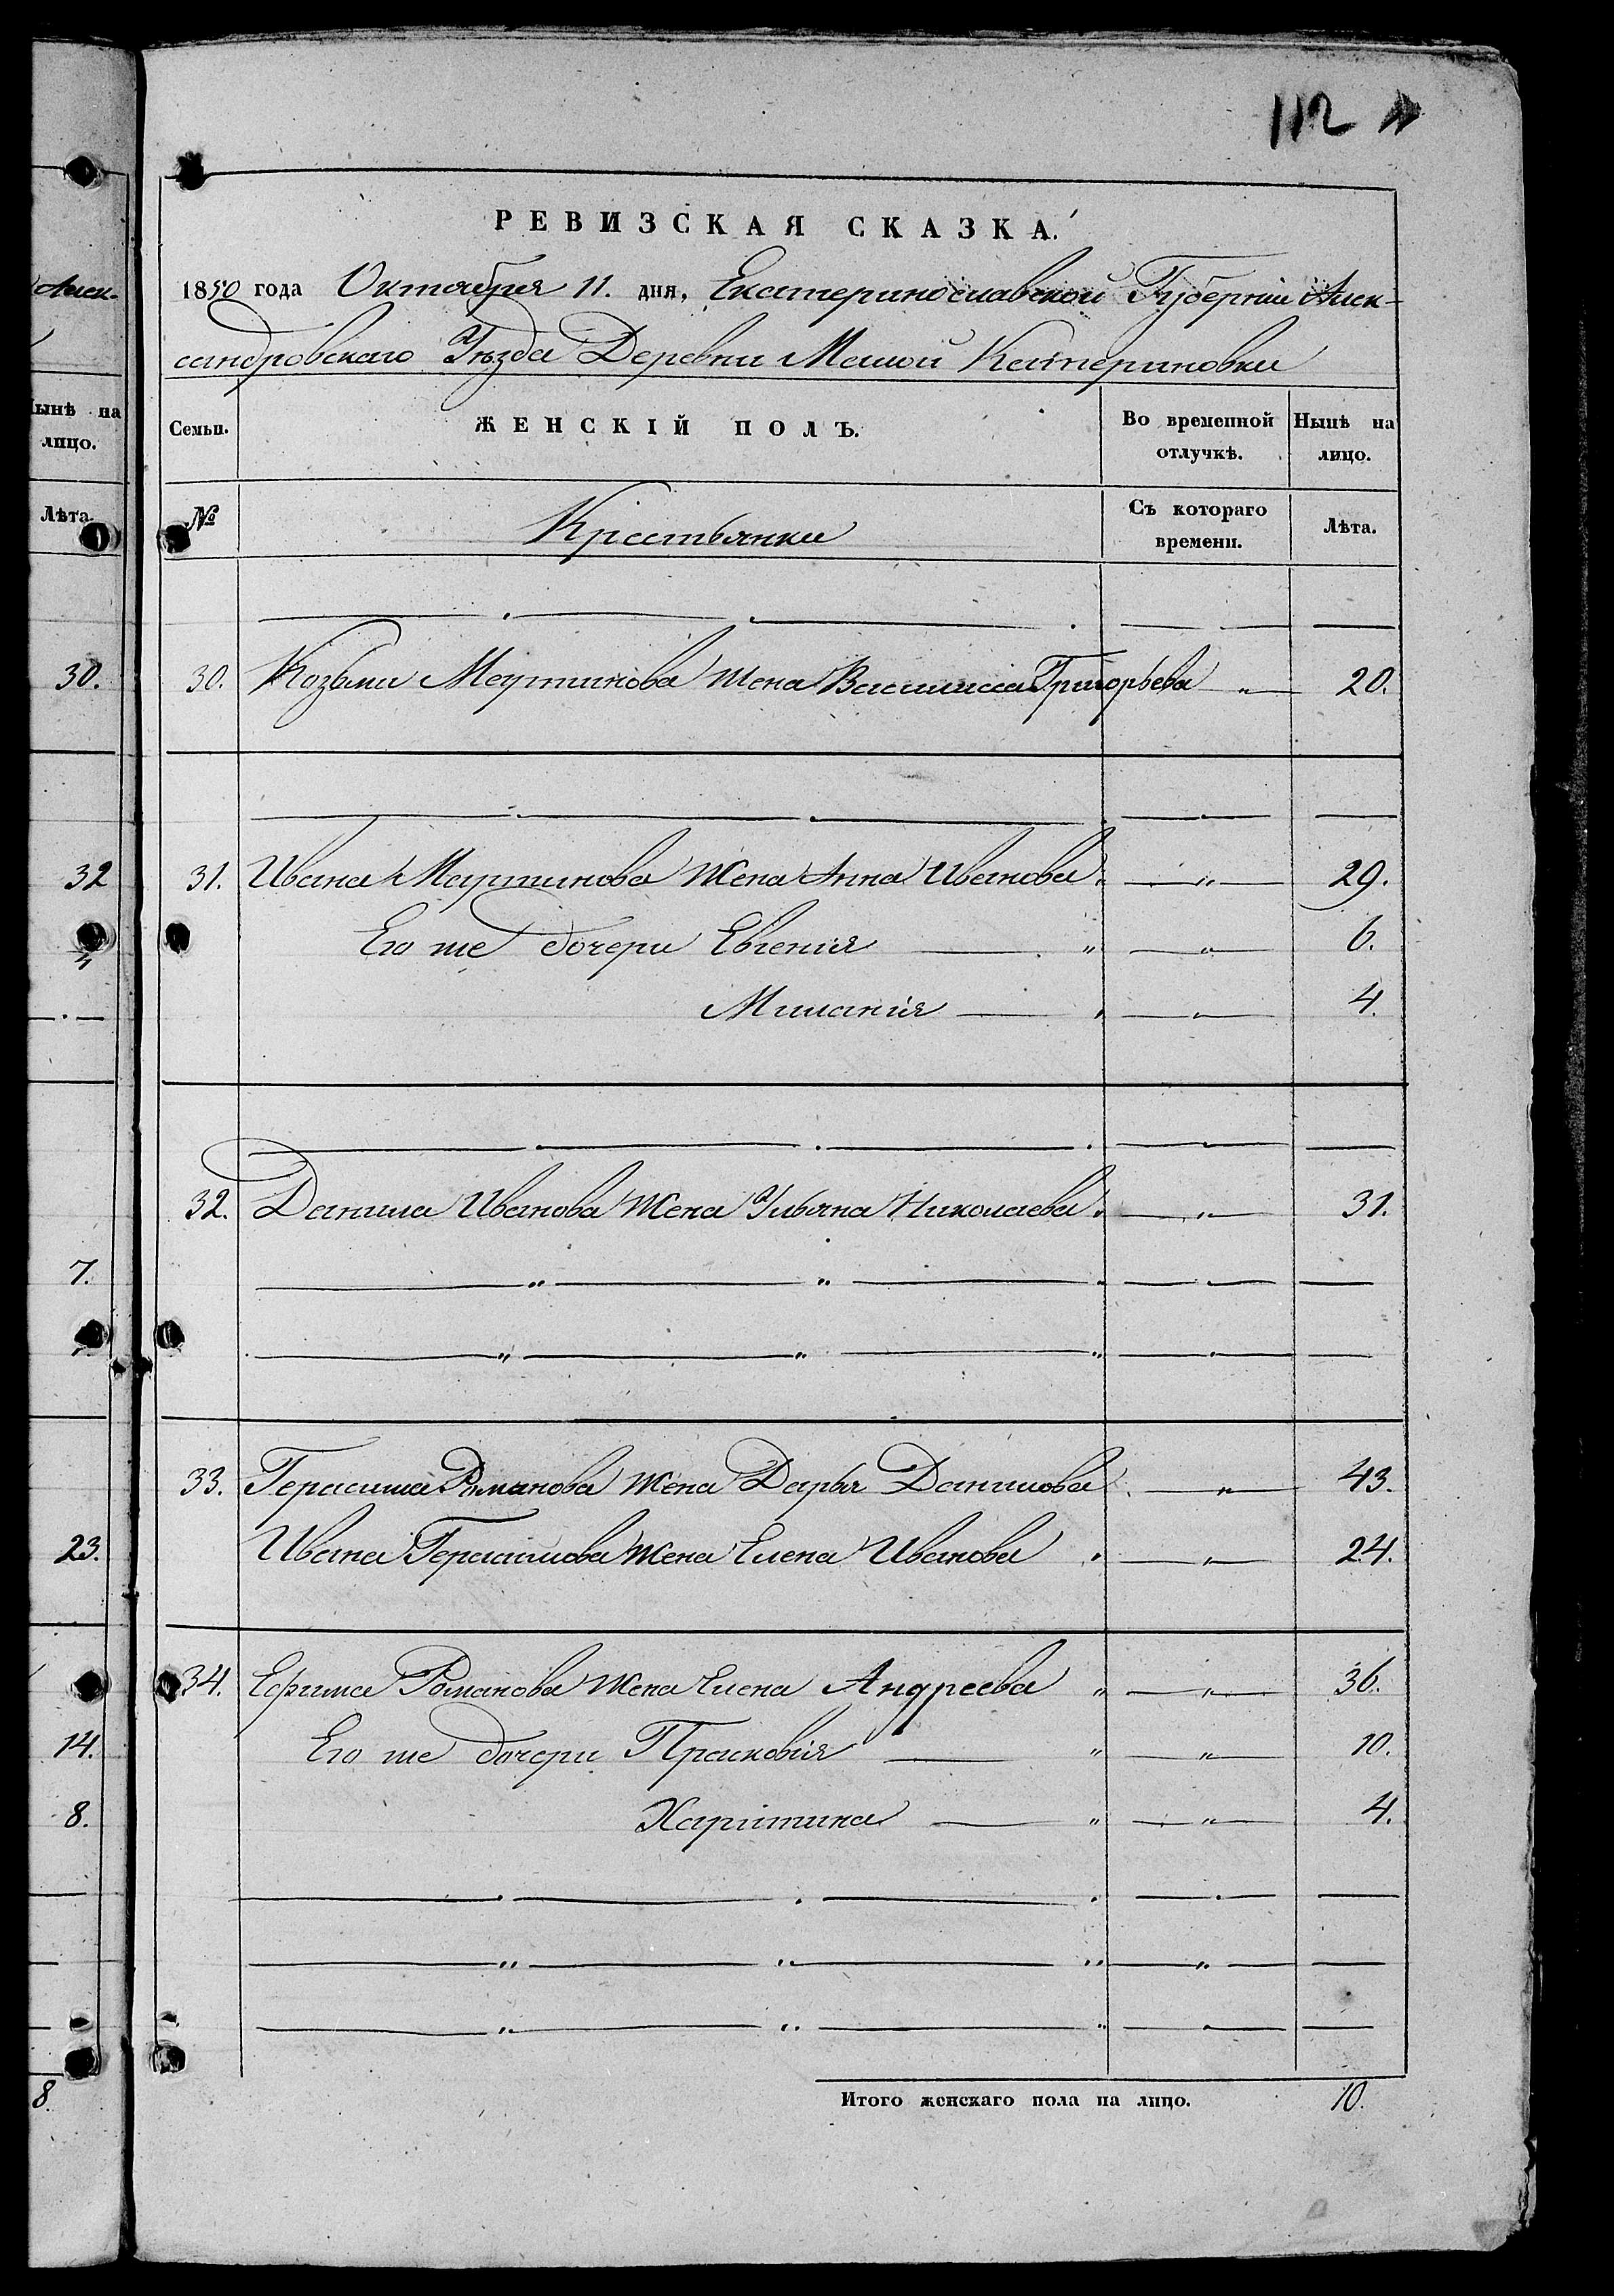 112
РЕВИЗСКАЯ СКАЗКА.
1850 года Октября 11. дня, Екатеринославской Губерніи Алек-
сандровскаго Уѣзда Деревни Малой Катериновки
Семьи. ЖЕНСКІЙ ПОЛЪ. Во временной отлучкѣ. Нынѣ на лицо.
№ Крестьянки Съ котораго времени. Лѣта.
30. Козьми Мартинова жена Василиса Григорьева „ 20.
31. Ивана Мартинова жена Анна Иванова „ 29.
Его же дочери Евгенія „ „ 6.
Миланія „ 4.
32. Данила Иванова жена Ульяна Николаева „ 31.
33. Герасима Романова жена Дарья Данилова „ 43.
Ивана Герасимова жена Елена Иванова „ 24.
34. Ефима Романова жена Елена Андреева „ „ 36.
Его же дочери Прасковія „ „ 10.
Харитина „ „ 4.
Итого женскаго пола на лицо. 10.
Алек-
Нынѣ на
лицо.
Лѣта.
30.
32
4
7.
23.
14.
8.
8.